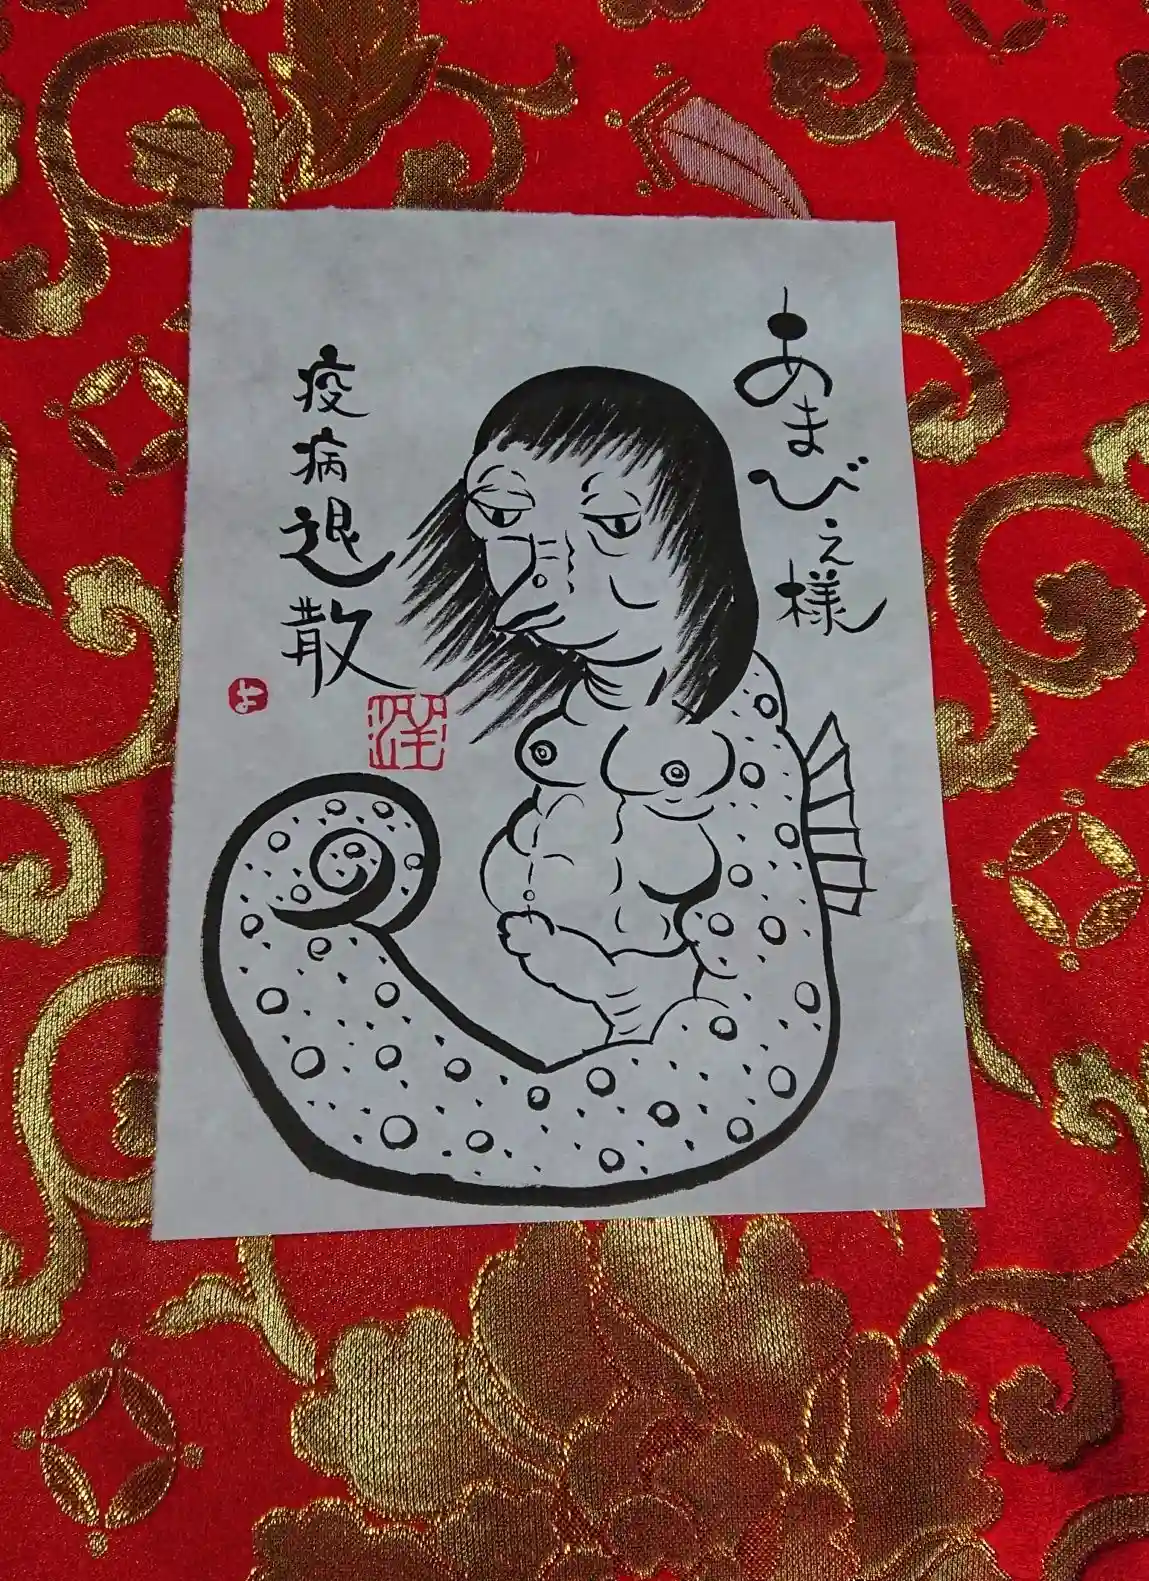 あまびえ様
疫病退散
よ